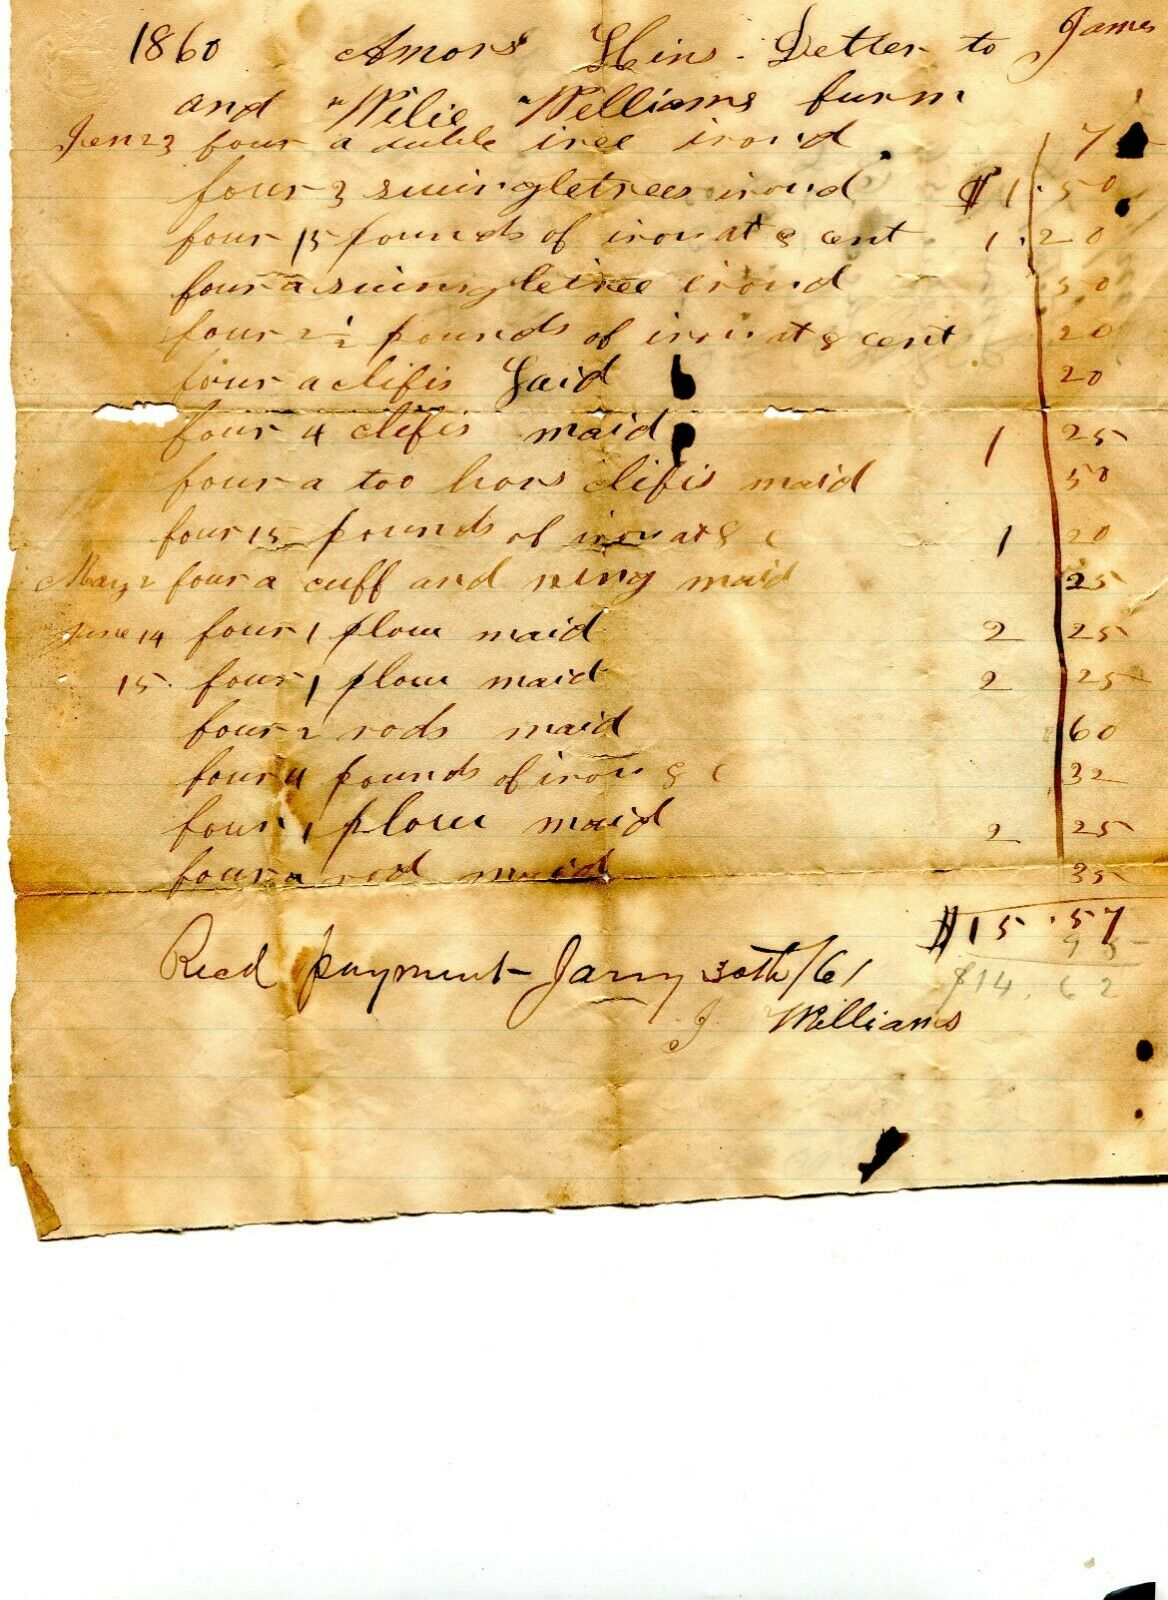 1860 Amors Hins Detter to James
and Wilie Williams furm
Jan 23 four a duble tree irond 7
four 3 swingletrees irond $1.50
four 15 pounds of iron at 8 cent 1.20
four a swingletree irond 50
four 2 1/2 pounds of iron at 8 cent 20
four a clifis Laid 20
four 4 clifis maid 1 25
four a too hors clifis maid 50
four 15 pounds of iron at 8 c 1 20
May 2 four a cuff and ring maid 25
June 14 four 1 plow maid 2 25
15 four 1 plow maid 2 25
four 2 rods maid 60
four 4 pounds of iron 8 c 32
four 1 plow maid 2 25
four a rod maid 35
$15.57
95
Recd payment Jany 30th/61 $14.62
J Williams